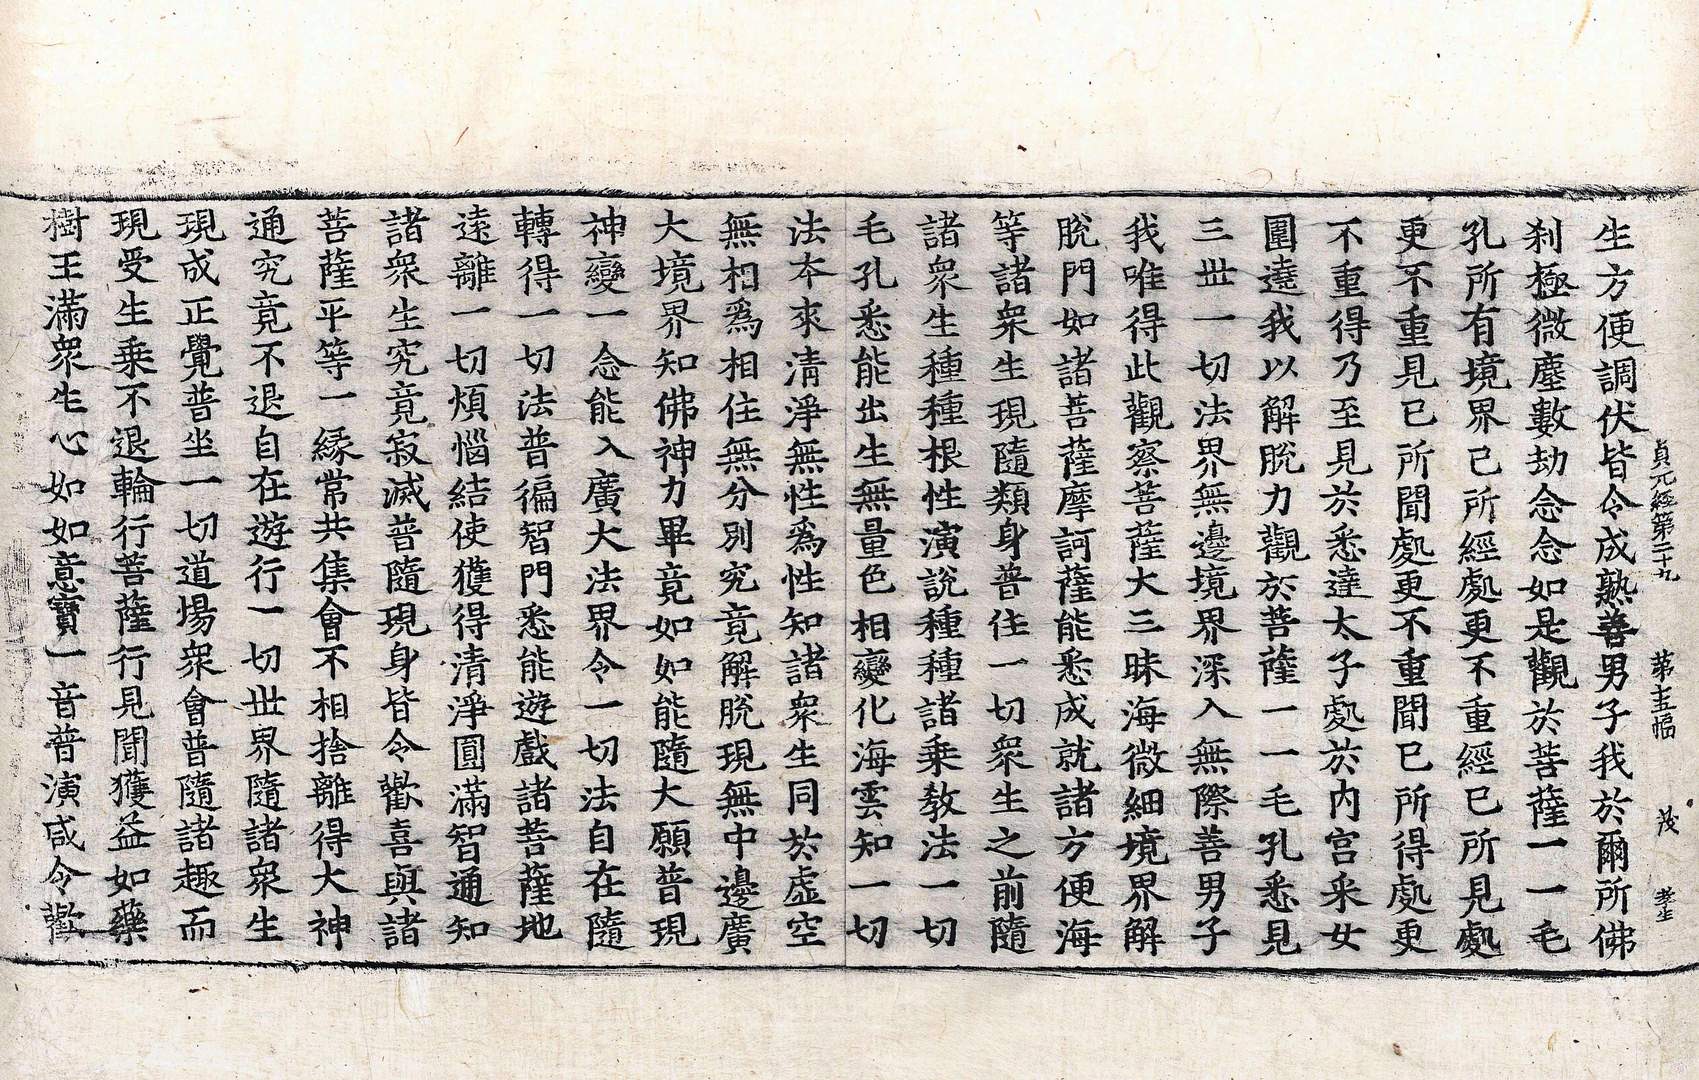 貞元經第二十九 第主幅 茂 孝生
生方便調伏皆令成熟善男子我於爾所佛
刹極微塵數劫念念如是觀於菩薩一一毛
孔所有境界已所經處更不重經已所見處
更不重見已所聞處更不重聞已所得處更
不重得乃至見於悉達太子處於内宮采女
圍遶我以解脫力觀於菩薩一一毛孔悉見
三世一切法界無邊境界深入無際善男子
我唯得此觀察菩薩大三昧海微細境界解
脫門如諸菩薩摩訶薩能悉成就諸方便海
等諸衆生現隨類身普住一切衆生之前隨
諸衆生種種根性演說種種諸乘教法一切
毛孔悉能出生無量色相變化海雲知一切
法本來清淨無性爲性知諸衆生同於虛空
無相爲相住無分別究竟解脫現無中邊廣
大境界知佛神力畢竟如如能隨大願普現
神變一念能入廣大法界令一切法自在隨
轉得一切法普徧智門悉能遊戲諸菩薩地
遠離一切煩惱結使獲得清淨圓滿智通知
諸衆生究竟寂滅普隨現身皆令歡喜與諸
菩薩平等一緣常共集會不相捨離得大神
通究竟不退自在遊行一切世界隨諸衆生
現成正覺普坐一切道場衆會普隨諸趣而
現受生乘不退輪行菩薩行見聞獲益如藥
樹王滿衆生心如如意寶一音普演咸令歡